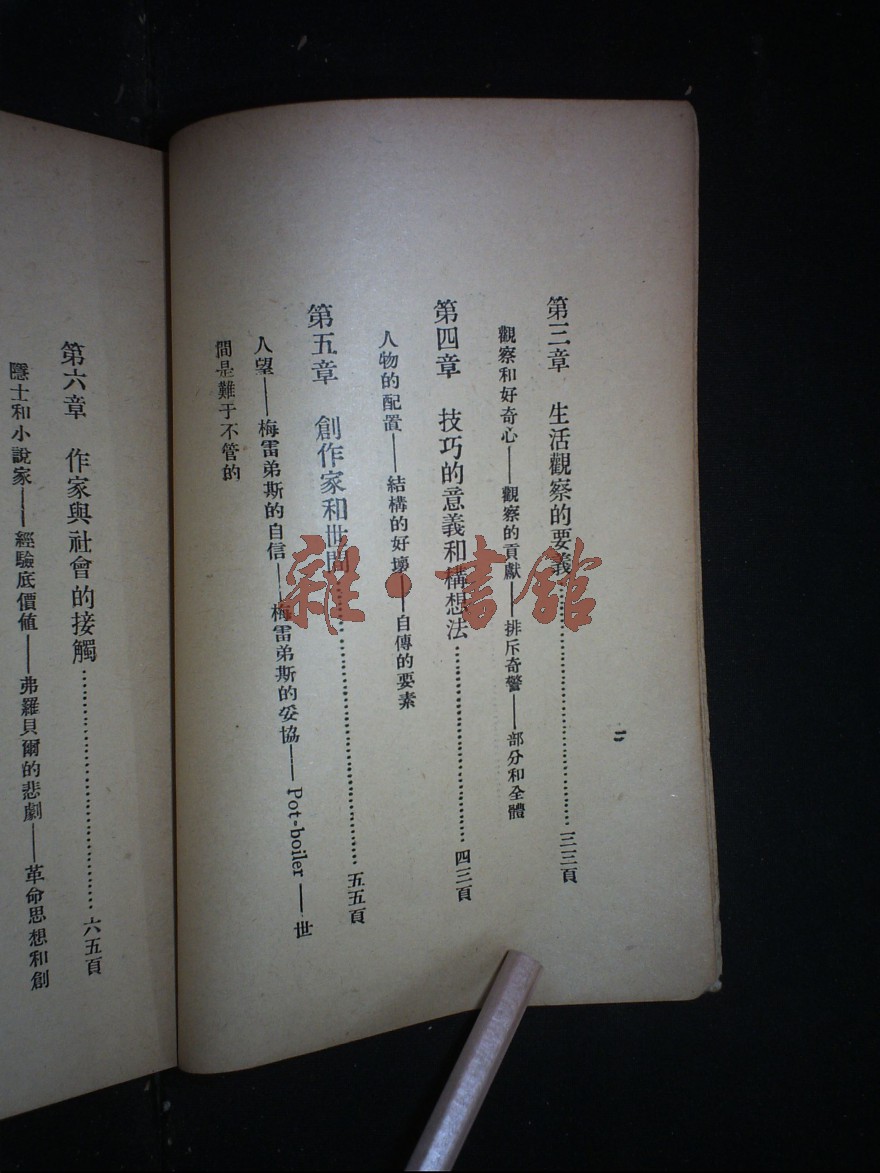 二
第三章　生活觀察的要義……三三頁
觀察和好奇心——觀察的貢獻——排斥奇警——部分和全體
第四章　技巧的意義和構想法……四三頁
人物的配置——結構的好壞——自傳的要素
第五章　創作家和世間……五五頁
人望——梅雷弟斯的自信——梅雷弟斯的妥協——Pot-boiler——世
間是難于不管的
第六章　作家與社會的接觸……六五頁
隱士和小說家——經驗底價値——弗羅貝爾的悲劇——革命思想和創
雜·書館